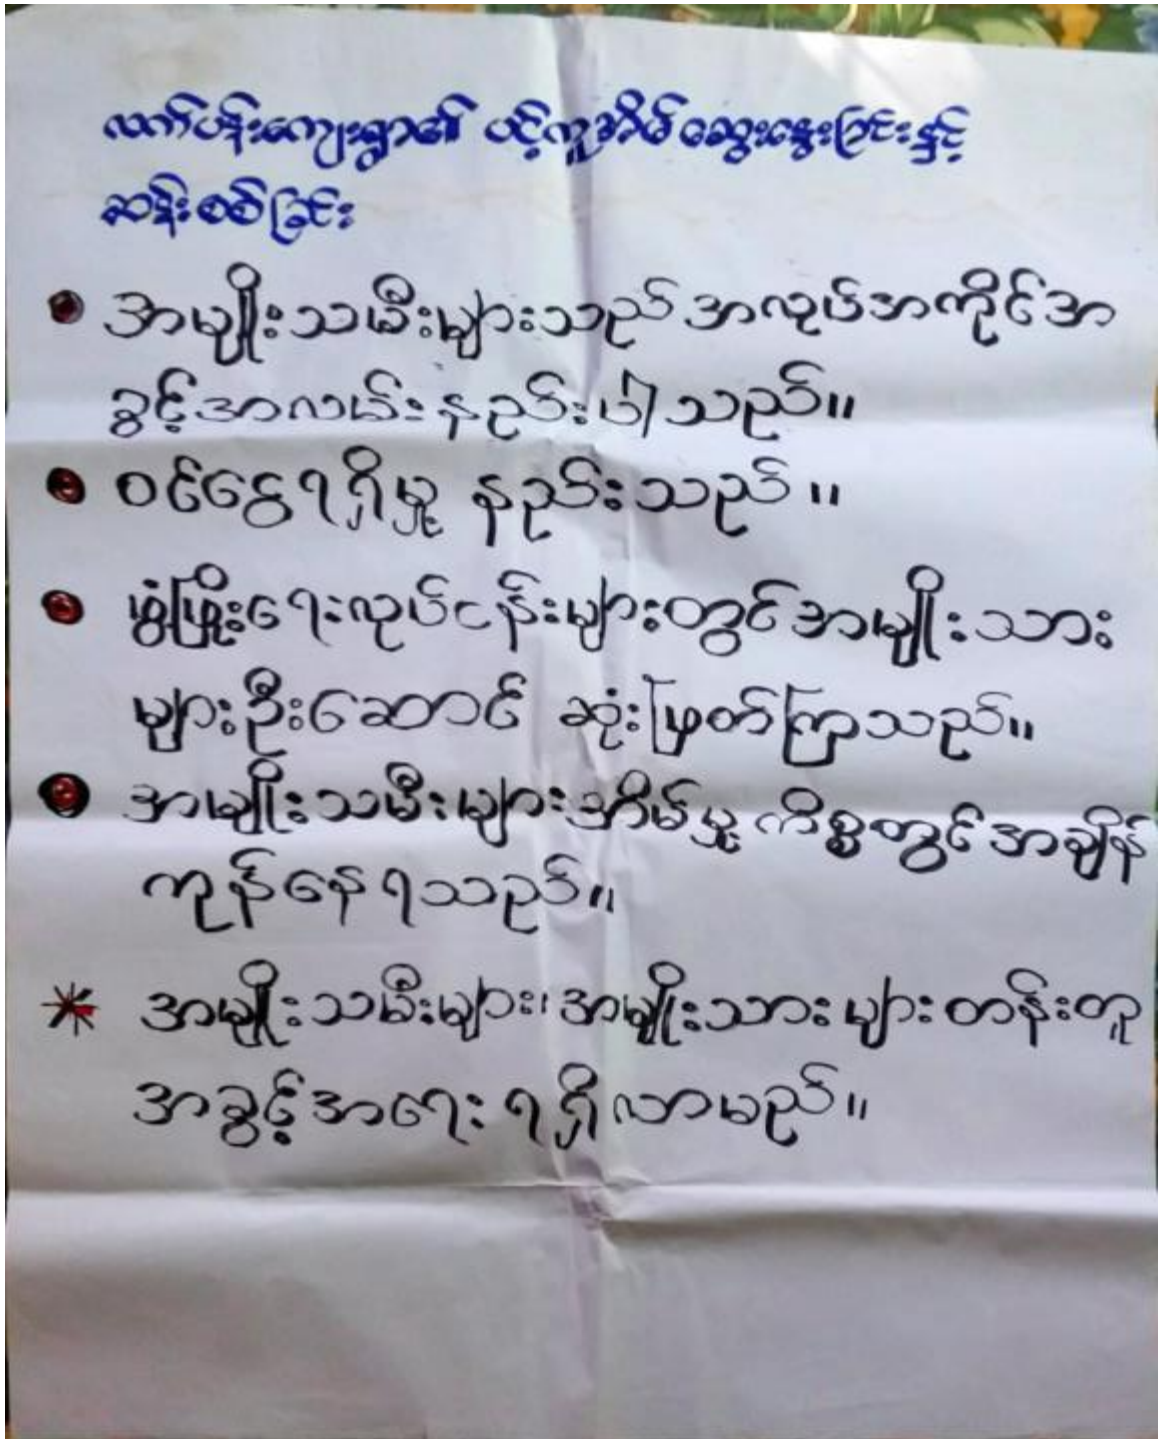 လက်ပန်းကျေးရွာ၏ ပင့်ကူအိမ်ဆွေးနွေးခြင်းနှင့်
ဆန်းစစ်ခြင်း
• အမျိုးသမီးများသည်အလုပ်အကိုင်အ
ခွင့်အလမ်းနည်းပါသည်။
• ဝင်ငွေရရှိမှု နည်းသည်။
• ဖွံ့ဖြိုးရေးလုပ်ငန်းများတွင်အမျိုးသား
များဦးဆောင် ဆုံးဖြတ်ကြသည်။
• အမျိုးသမီးများအိမ်မှုကိစ္စတွင်အချိန်
ကုန်နေရသည်။
* အမျိုးသမီးများ၊အမျိုးသားများတန်းတူ
အခွင့်အရေးရရှိလာမည်။